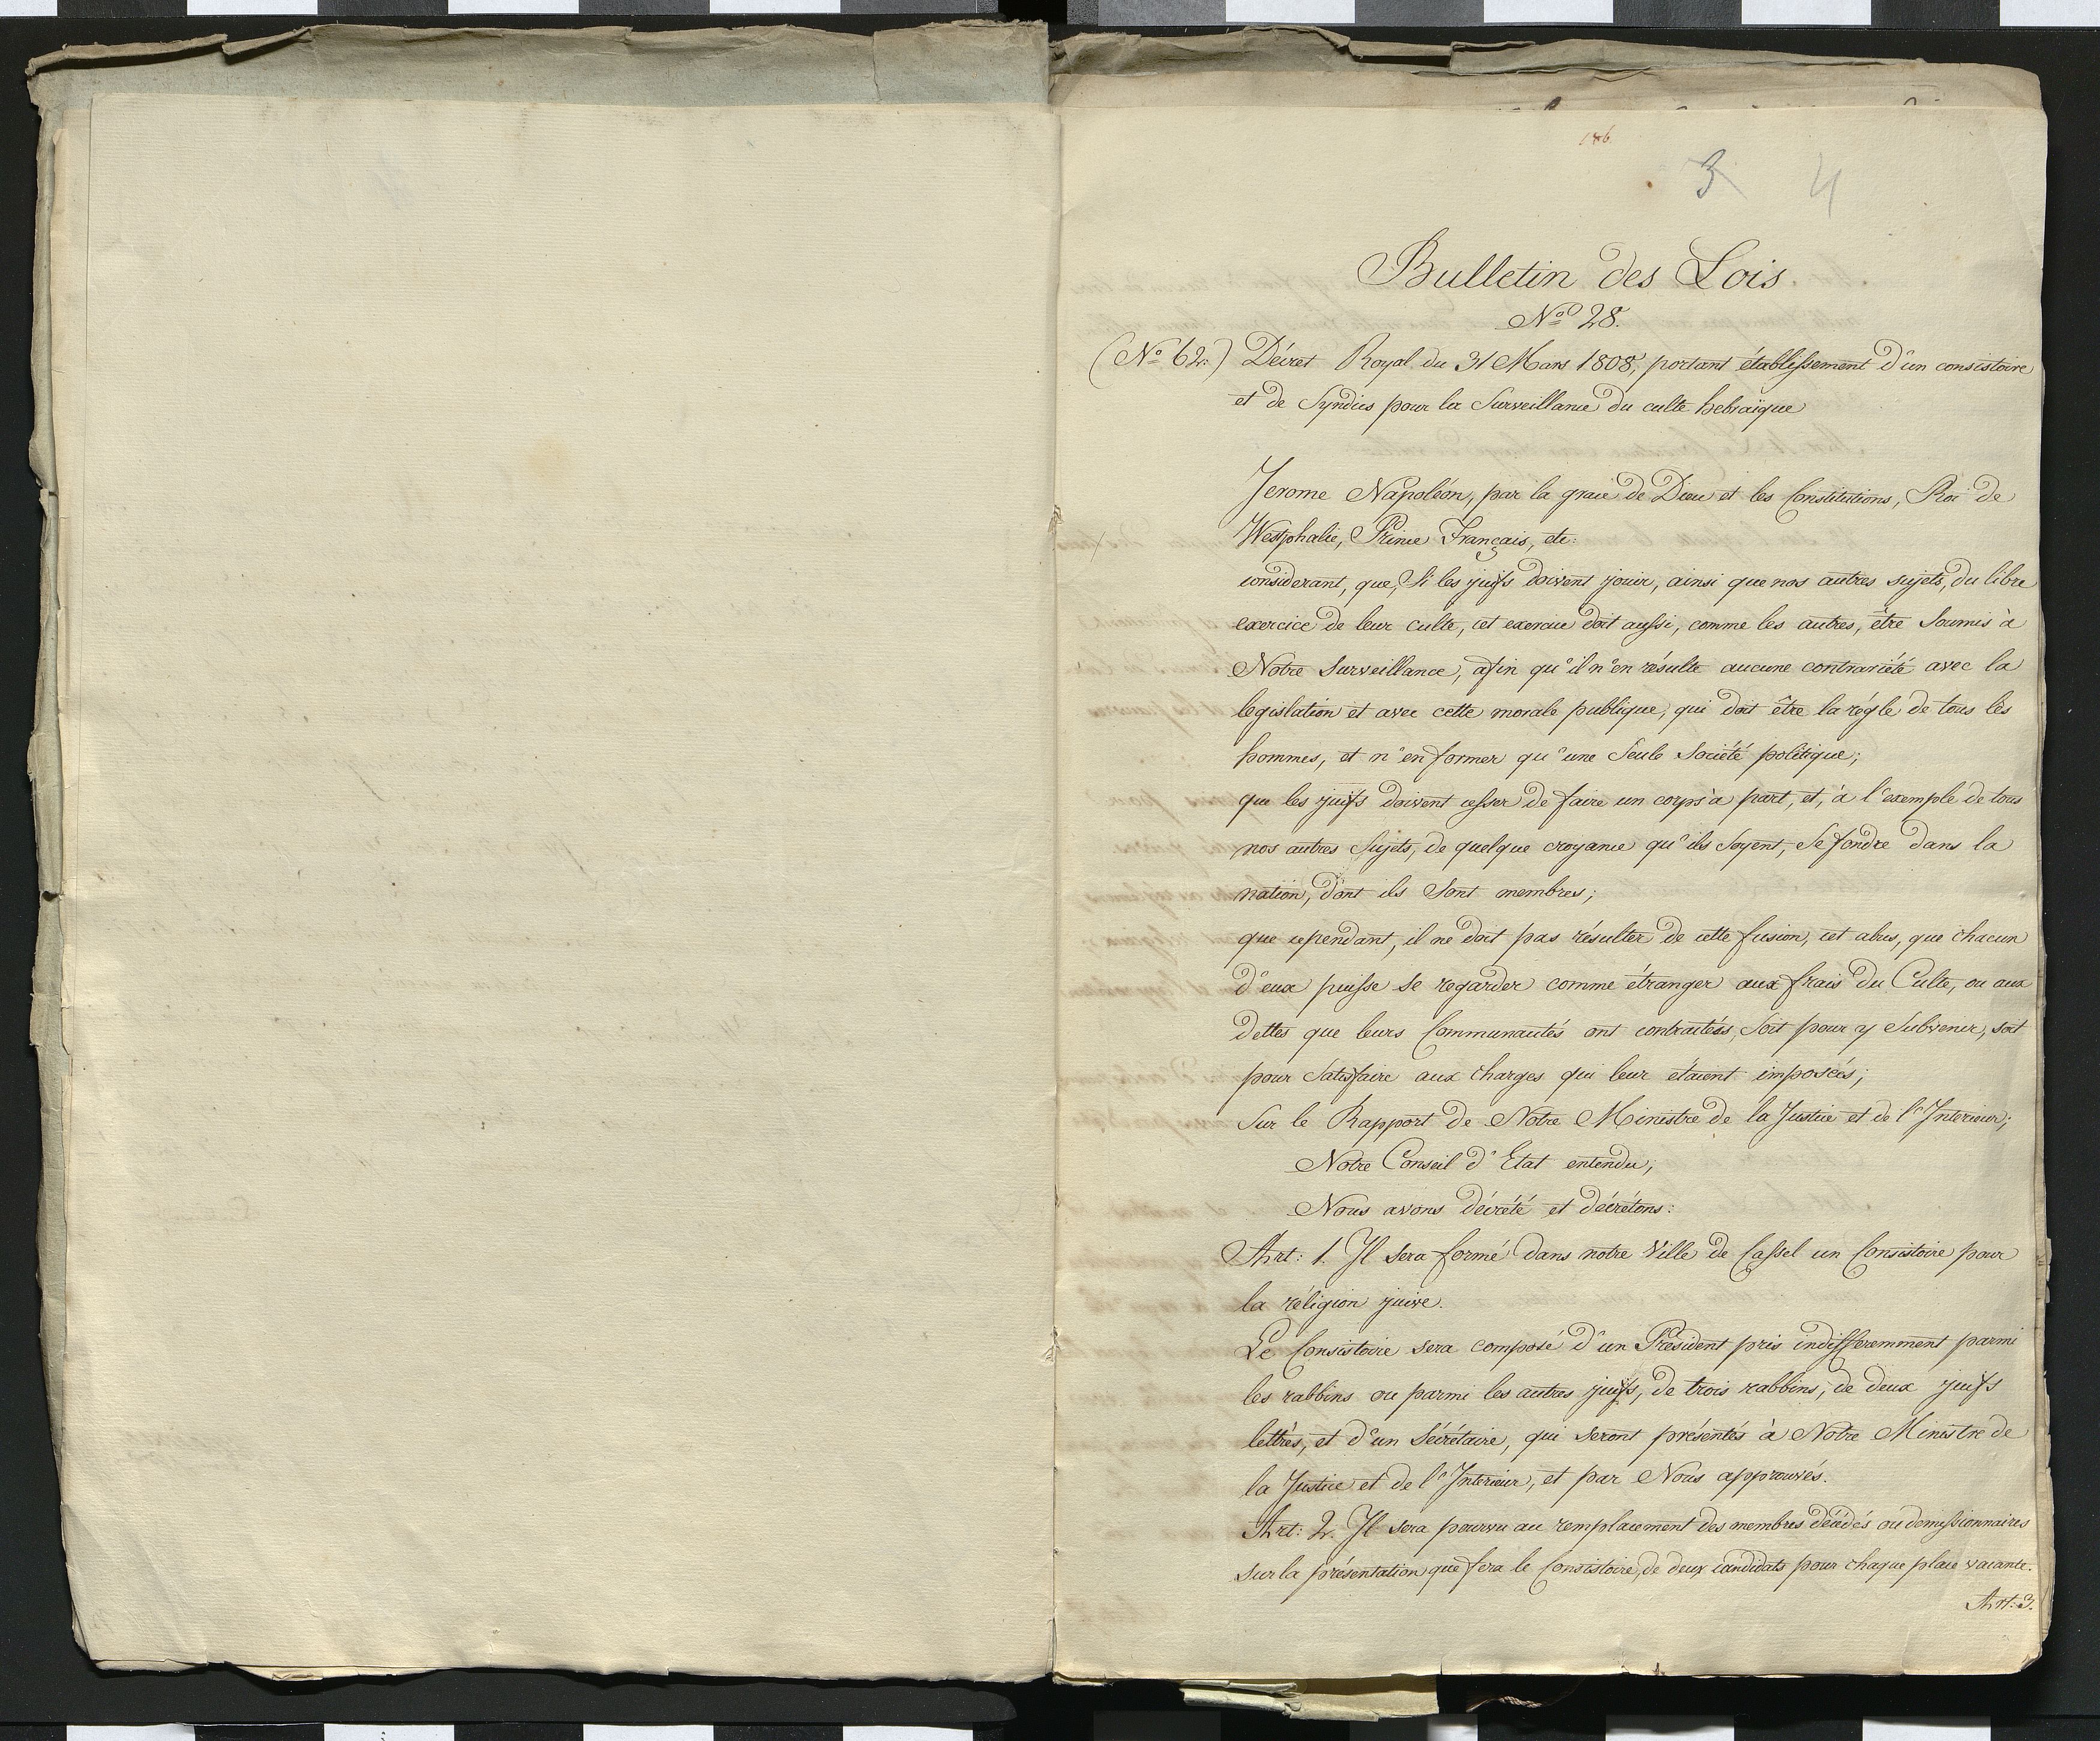 186.
3 4
Bulletin des Lois
No 28.
(No 62.) Décret Royal du 31 Mars 1808, portant établissement d'un consistoire
et de Syndics pour la Surveillance du culte hebraïque
Jerome Napoléon, par la grace de Dieu et les Constitutions, Roi de
Westphalie, Prince Français, etc:
considerant, que, Si les juifs doivent jouir, ainsi que nos autres sujets, du libre
exercice de leur culte, cet exercice doit aussi, comme les autres, être Soumis à
Notre Surveillance, afin qu'il n'en résulte aucune contrariété avec la
legislation et avec cette morale publique, qui doit être la régle de tous les
hommes, et n'en former qu'une Seule Société politique;
que les juifs doivent cesser de faire un corps à part, et, à l'exemple de tous
nos autres Sujets, de quelque croyance qu'ils Soyent, Se fondre dans la
nation, dont ils Sont membres;
que cependant, il ne doit pas résulter de cette fusion, cet abus, que chacun
d'eux puisse se regarder comme étranger aux frais du Culte, ou aux
dettes que leurs Communautés ont contractées, Soit pour y Subvenir, soit
pour Satisfaire aux charges qui leur etaient imposées;
Sur le Rapport de Notre Ministre de la Justice et de l'Interieur;
Notre Conseil d'Etat entendu;
Nous avons décrété et décrétons:
Art: 1. Il sera formé dans notre Ville de Cassel un Consistoire pour
la réligion juive.
Le Consistoire sera composé d'un Président pris indifferemment parmi
les rabbins ou parmi les autres juifs, de trois rabbins, de deux juifs
lettrés, et d'un Sécrétaire, qui seront présentés à Notre Ministre de
la Justice et de l'Interieur, et par Nous approuvés.
Art: 2. Il sera pourvu au remplacement des membres décédés ou demissionnaires
sur la présentation que fera le Consistoire, de deux candidats pour chaque place vacante.
Art: 3.